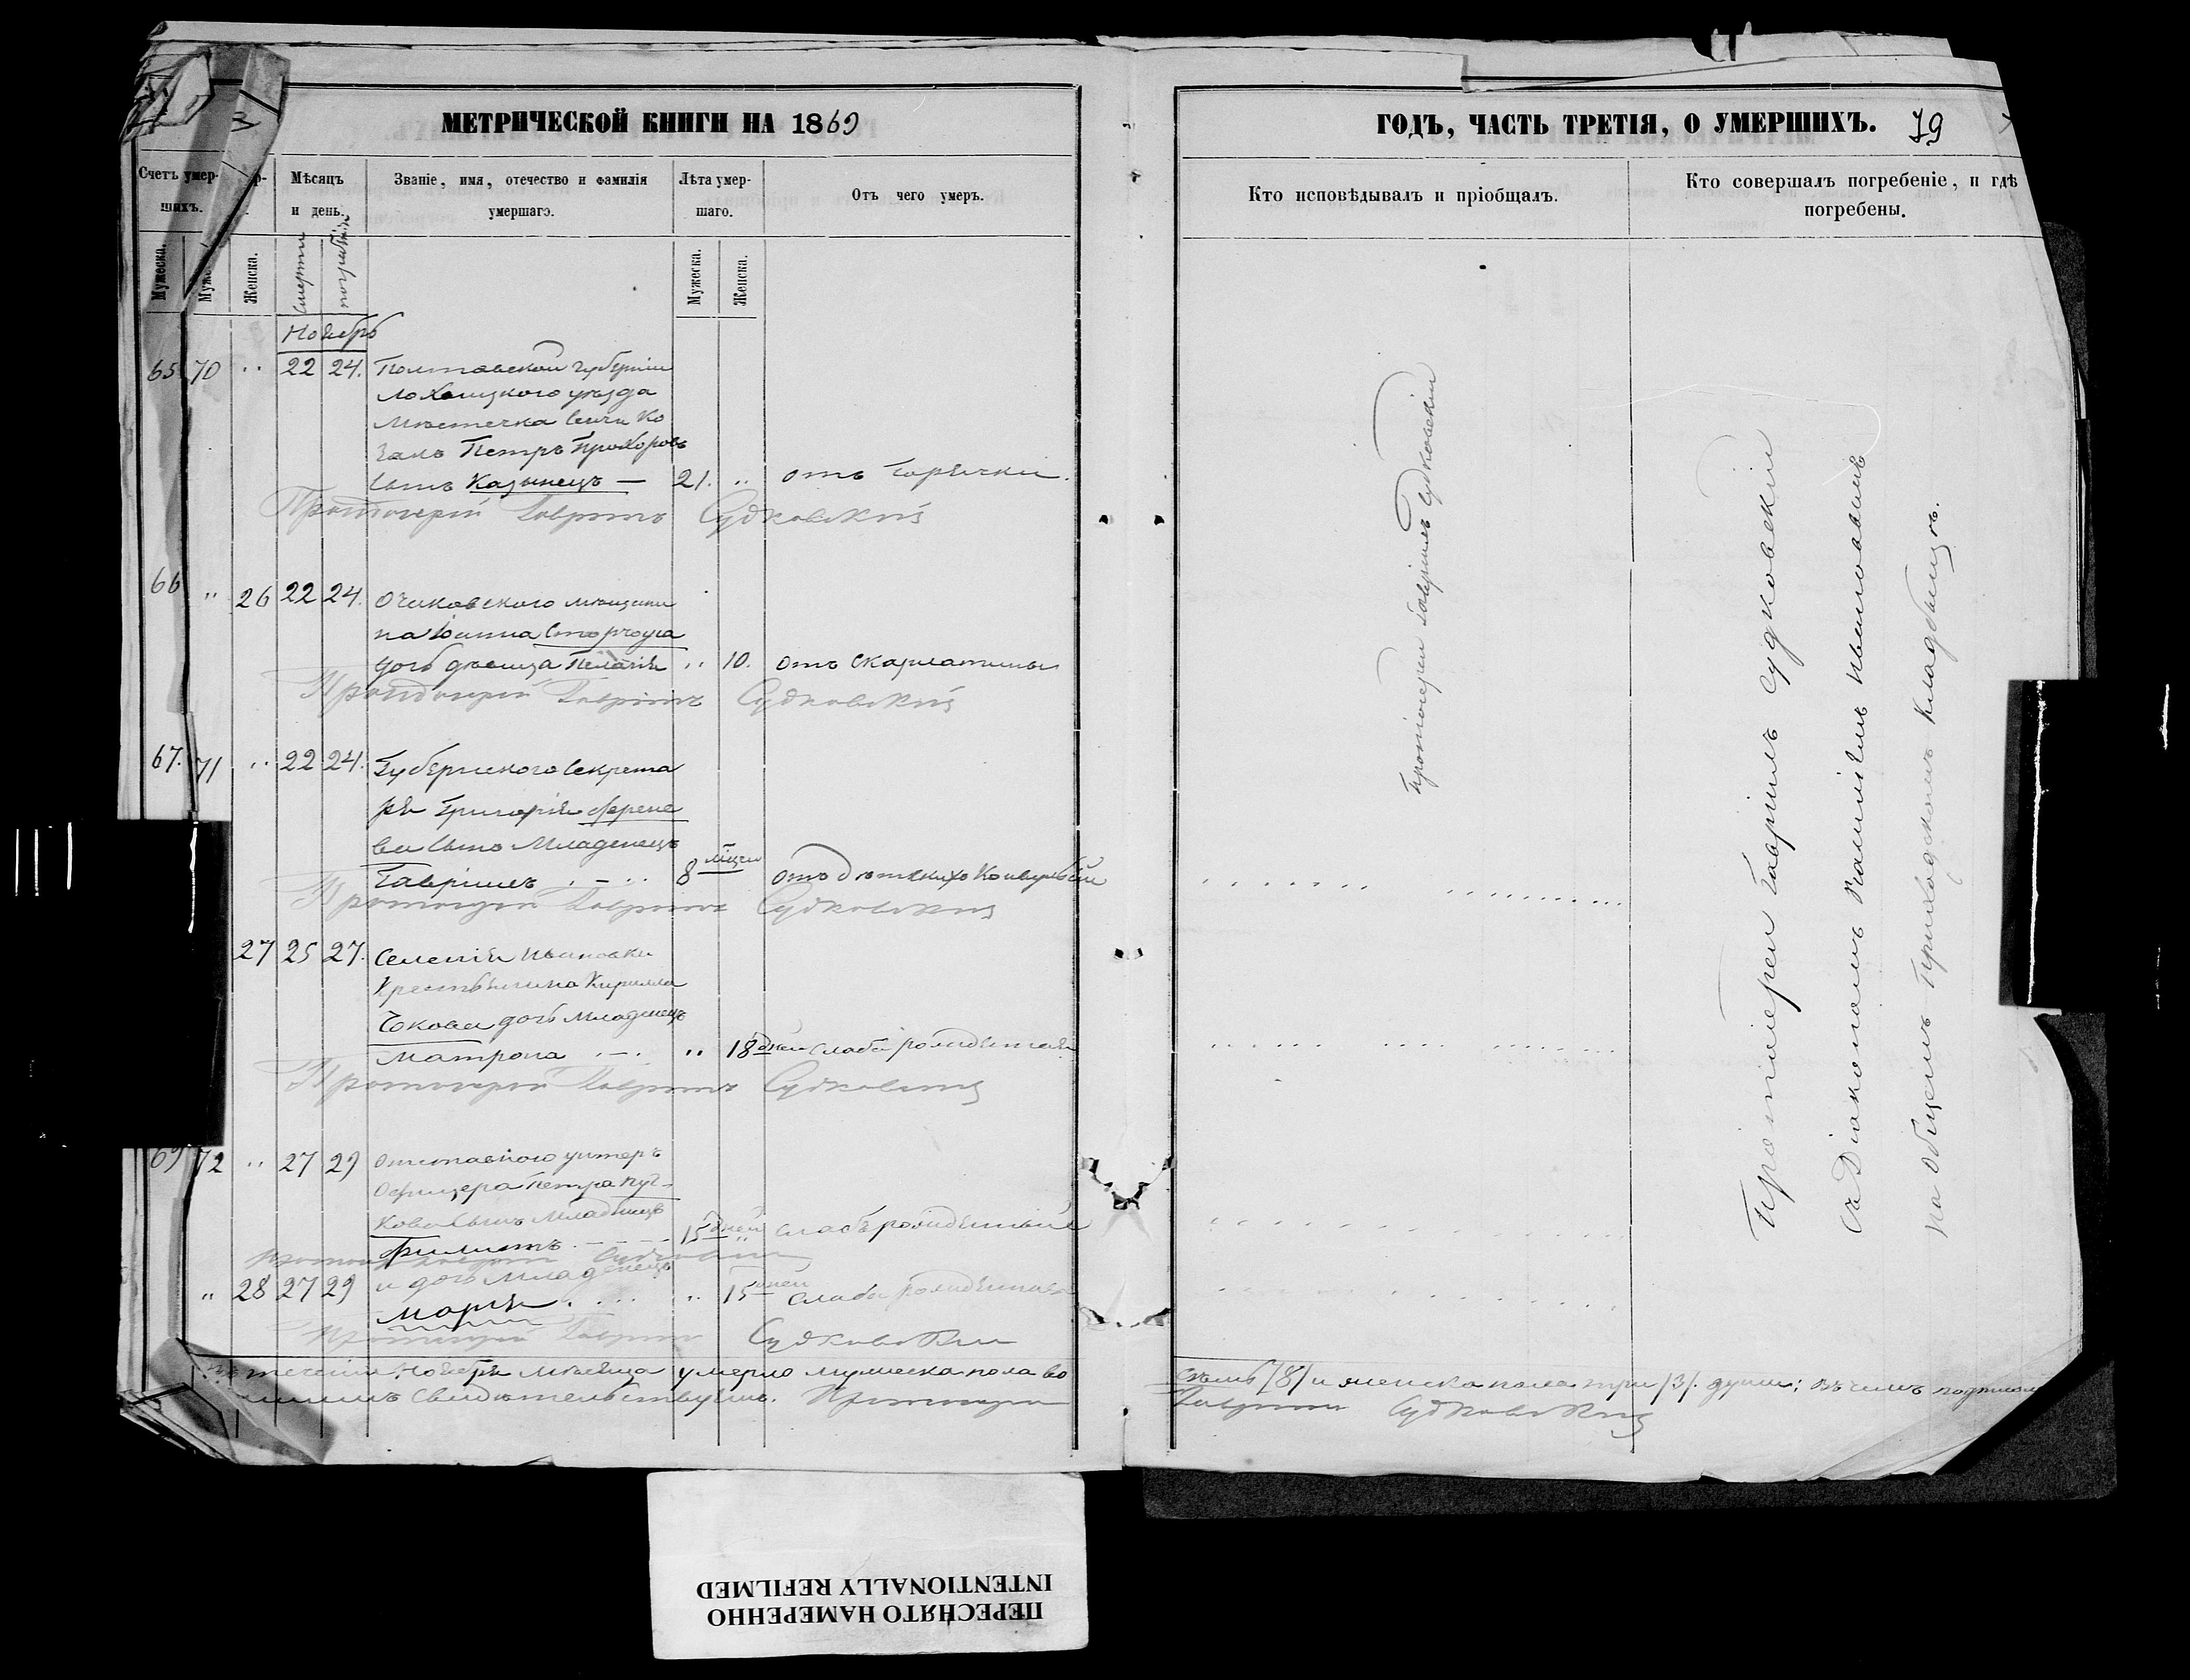 МЕТРИЧЕСКОЙ КНИГИ НА 1869
Счетъ умер-
шихъ.
Мѣсяцъ
и день.
Званіе, имя, отечество и фамилія
умершаго.
Лѣта умер-
шаго.
Отъ чего умеръ.
Мужеска.
Женска.
Смерти
погребенія
Мужеска.
Женска.
Ноябрь
65 70 " 22 24. Полтавской губерніи
Лохвицкого уѣзда
Мѣстечка Сенчи Ко
закъ Петръ Прохоровъ
сынъ Казынецъ — 21. " отъ Горячки.
Протоіерей Гавріилъ Судковскій
66 " 26 22 24. Очаковского мѣщани
на Іоанна Сторчоуса
дочь дѣвица Пелагія " 10. отъ Скарлатины
Протоіерей Гавріилъ Судковскій
67. 71 " 22 24. Губернского Секрета
ря Григорія
ва сынъ Младенецъ
Гавріилъ 8 мѣсяц отъ дѣтскихъ Конвульсій
Протоіерей Гавріилъ Судковскій
27 25 27. Селенія Ивановки
Крестьянина Кирилла
дочь Младенецъ
Матрона " 18 дней слаборожденная
Протоіерей Гавріилъ Судковскій
69 72 " 27 29 Отставного унтеръ
Офицера Петра
кова сынъ Младенецъ
Филиппъ 15 дней " слаборожденный
Протоіерей Гавріилъ Судковскій
" 28 27 29 и дочь Младенецъ
Марія " 15 дней слаборожденная
Протоіерей Гавріилъ Судковскій
теченіи Ноября мѣсяца умерло мужеска пола во
Свидѣтельствуемъ. Протоіерей
ГОДЪ, ЧАСТЬ ТРЕТІЯ, О УМЕРШИХЪ. 79
Кто исповѣдывалъ и пріобщалъ.
Кто совершалъ погребеніе, и гдѣ
погребены.
Протоіерей Гавріилъ Судковскій
Протоіерей Гавріилъ Судковскій
съ Діакономъ
на общемъ приходскомъ кладбищѣ.
семь /8/ и женска пола три /3/. души; въ чемъ
Гавріилъ Судковскій
ПЕРЕСНЯТО НАМЕРЕННО
INTENTIONALLY REFILMED